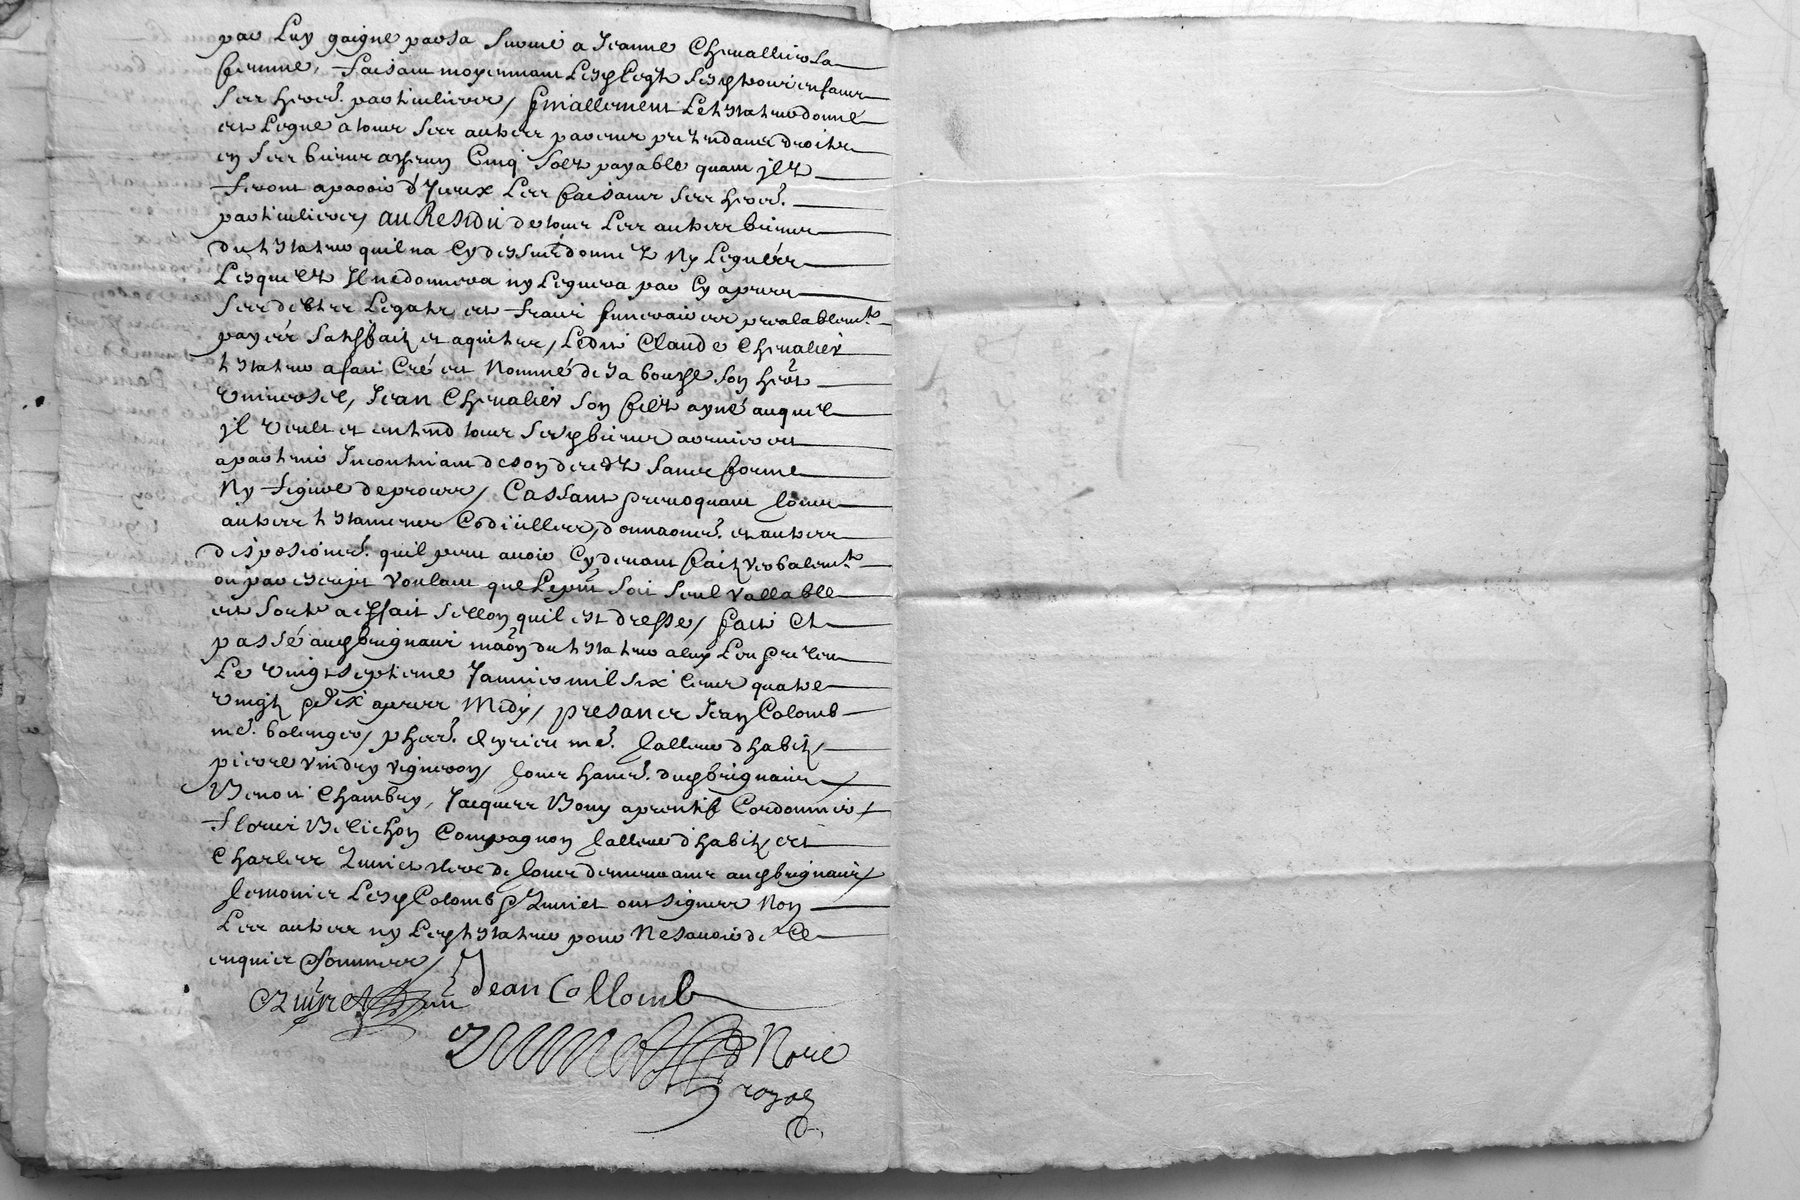 par Luy gaigne par sa survie a Jeanne Chevallier sa
femme, faisant moyennant Lesd Legtz sesd enfans
ses heres. particuliers / finallement Led testateur donne
et Legue a tous ses autres parens pretendants droictz
en ses biens assavoir Cinq solz payable quant ilz
feront aparoir d'Iceux Les faisant ses heres.
particuliers, au Residu de tous Les autres biens
dud testateur quil na Cy dessus donnéz Ny Leguéz
Lesquelz Il ne donnera ny Leguera par Cy apres
ses debtes Legatz et frais funeraires prealablemt
payés satisfaitz et aquittes, Ledit Claude Chevalier
testateur a fait Creé et Nommé de sa bouche son hert
universel, Jean Chevalier son filz ayné auquel
jl veult et entend tous sesd biens arriver et
apartenir Incontinant de son decedz sans forme
Ny figure de proces / Cassant revoquant tous
autres testamens Codicilles, donnaones. et autres
disposiones. quil peut avoir Cy devant faitz verbalemt
ou par escript voulant que Le pnt soit seul vallable
et sorte a effait sellon quil est dresse, fait Et
passé aud brignais maon dud testateur
Le vingt septieme Janvier mil six Cens quatre
vingtz dix apres Midy, presances Jean Colomb
me. bolenger, me. tallieur d habitz
pierre vindry vigneron, tous habes. dud brignais
Benoit Chambry, Jacques Bony aprentif Cordonnier
fleury Belichon Compagnon tallieur d'habitz et
Charles Zuniet clerc de tous demeurants aud brignais
temoins Lesd Colomb & Zuniet ont signes Non
Les autres ny Led testateur pour Ne savoir de Ce
enquis et sommes /
Zuniet Jean Collomb
Zuniet Nore
royal